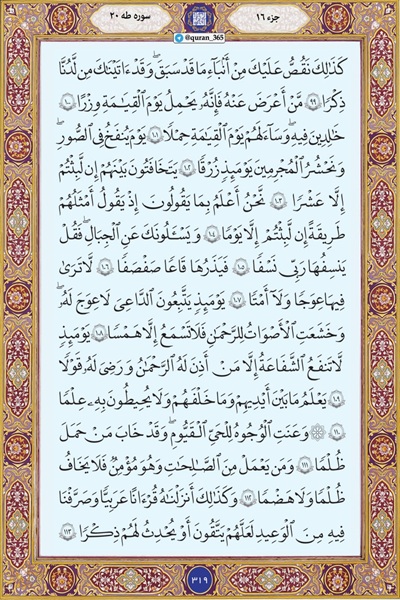 سوره طه ٢٠
جزء ١٦
@quran_365
كَذَٰلِكَ نَقُصُّ عَلَيْكَ مِنْ أَنۢبَآءِ مَا قَدْ سَبَقَ ۚ وَقَدْ ءَاتَيْنَٰكَ مِن لَّدُنَّا
ذِكْرًا ٩٩ مَّنْ أَعْرَضَ عَنْهُ فَإِنَّهُۥ يَحْمِلُ يَوْمَ ٱلْقِيَٰمَةِ وِزْرًا ١٠٠
خَٰلِدِينَ فِيهِ ۖ وَسَآءَ لَهُمْ يَوْمَ ٱلْقِيَٰمَةِ حِمْلًا ١٠١ يَوْمَ يُنفَخُ فِى ٱلصُّورِ ۚ
وَنَحْشُرُ ٱلْمُجْرِمِينَ يَوْمَئِذٍ زُرْقًا ١٠٢ يَتَخَٰفَتُونَ بَيْنَهُمْ إِن لَّبِثْتُمْ
إِلَّا عَشْرًا ١٠٣ نَّحْنُ أَعْلَمُ بِمَا يَقُولُونَ إِذْ يَقُولُ أَمْثَلُهُمْ
طَرِيقَةً إِن لَّبِثْتُمْ إِلَّا يَوْمًا ١٠٤ وَيَسْـَٔلُونَكَ عَنِ ٱلْجِبَالِ فَقُلْ
يَنسِفُهَا رَبِّى نَسْفًا ١٠٥ فَيَذَرُهَا قَاعًا صَفْصَفًا ١٠٦ لَّا تَرَىٰ
فِيهَا عِوَجًا وَلَآ أَمْتًا ١٠٧ يَوْمَئِذٍ يَتَّبِعُونَ ٱلدَّاعِىَ لَا عِوَجَ لَهُۥ ۖ
وَخَشَعَتِ ٱلْأَصْوَاتُ لِلرَّحْمَٰنِ فَلَا تَسْمَعُ إِلَّا هَمْسًا ١٠٨ يَوْمَئِذٍ
لَّا تَنفَعُ ٱلشَّفَٰعَةُ إِلَّا مَنْ أَذِنَ لَهُ ٱلرَّحْمَٰنُ وَرَضِىَ لَهُۥ قَوْلًا
١٠٩ يَعْلَمُ مَا بَيْنَ أَيْدِيهِمْ وَمَا خَلْفَهُمْ وَلَا يُحِيطُونَ بِهِۦ عِلْمًا
١١٠ ۞ وَعَنَتِ ٱلْوُجُوهُ لِلْحَىِّ ٱلْقَيُّومِ ۖ وَقَدْ خَابَ مَنْ حَمَلَ
ظُلْمًا ١١١ وَمَن يَعْمَلْ مِنَ ٱلصَّٰلِحَٰتِ وَهُوَ مُؤْمِنٌ فَلَا يَخَافُ
ظُلْمًا وَلَا هَضْمًا ١١٢ وَكَذَٰلِكَ أَنزَلْنَٰهُ قُرْءَانًا عَرَبِيًّا وَصَرَّفْنَا
فِيهِ مِنَ ٱلْوَعِيدِ لَعَلَّهُمْ يَتَّقُونَ أَوْ يُحْدِثُ لَهُمْ ذِكْرًا ١١٣
٣١٩